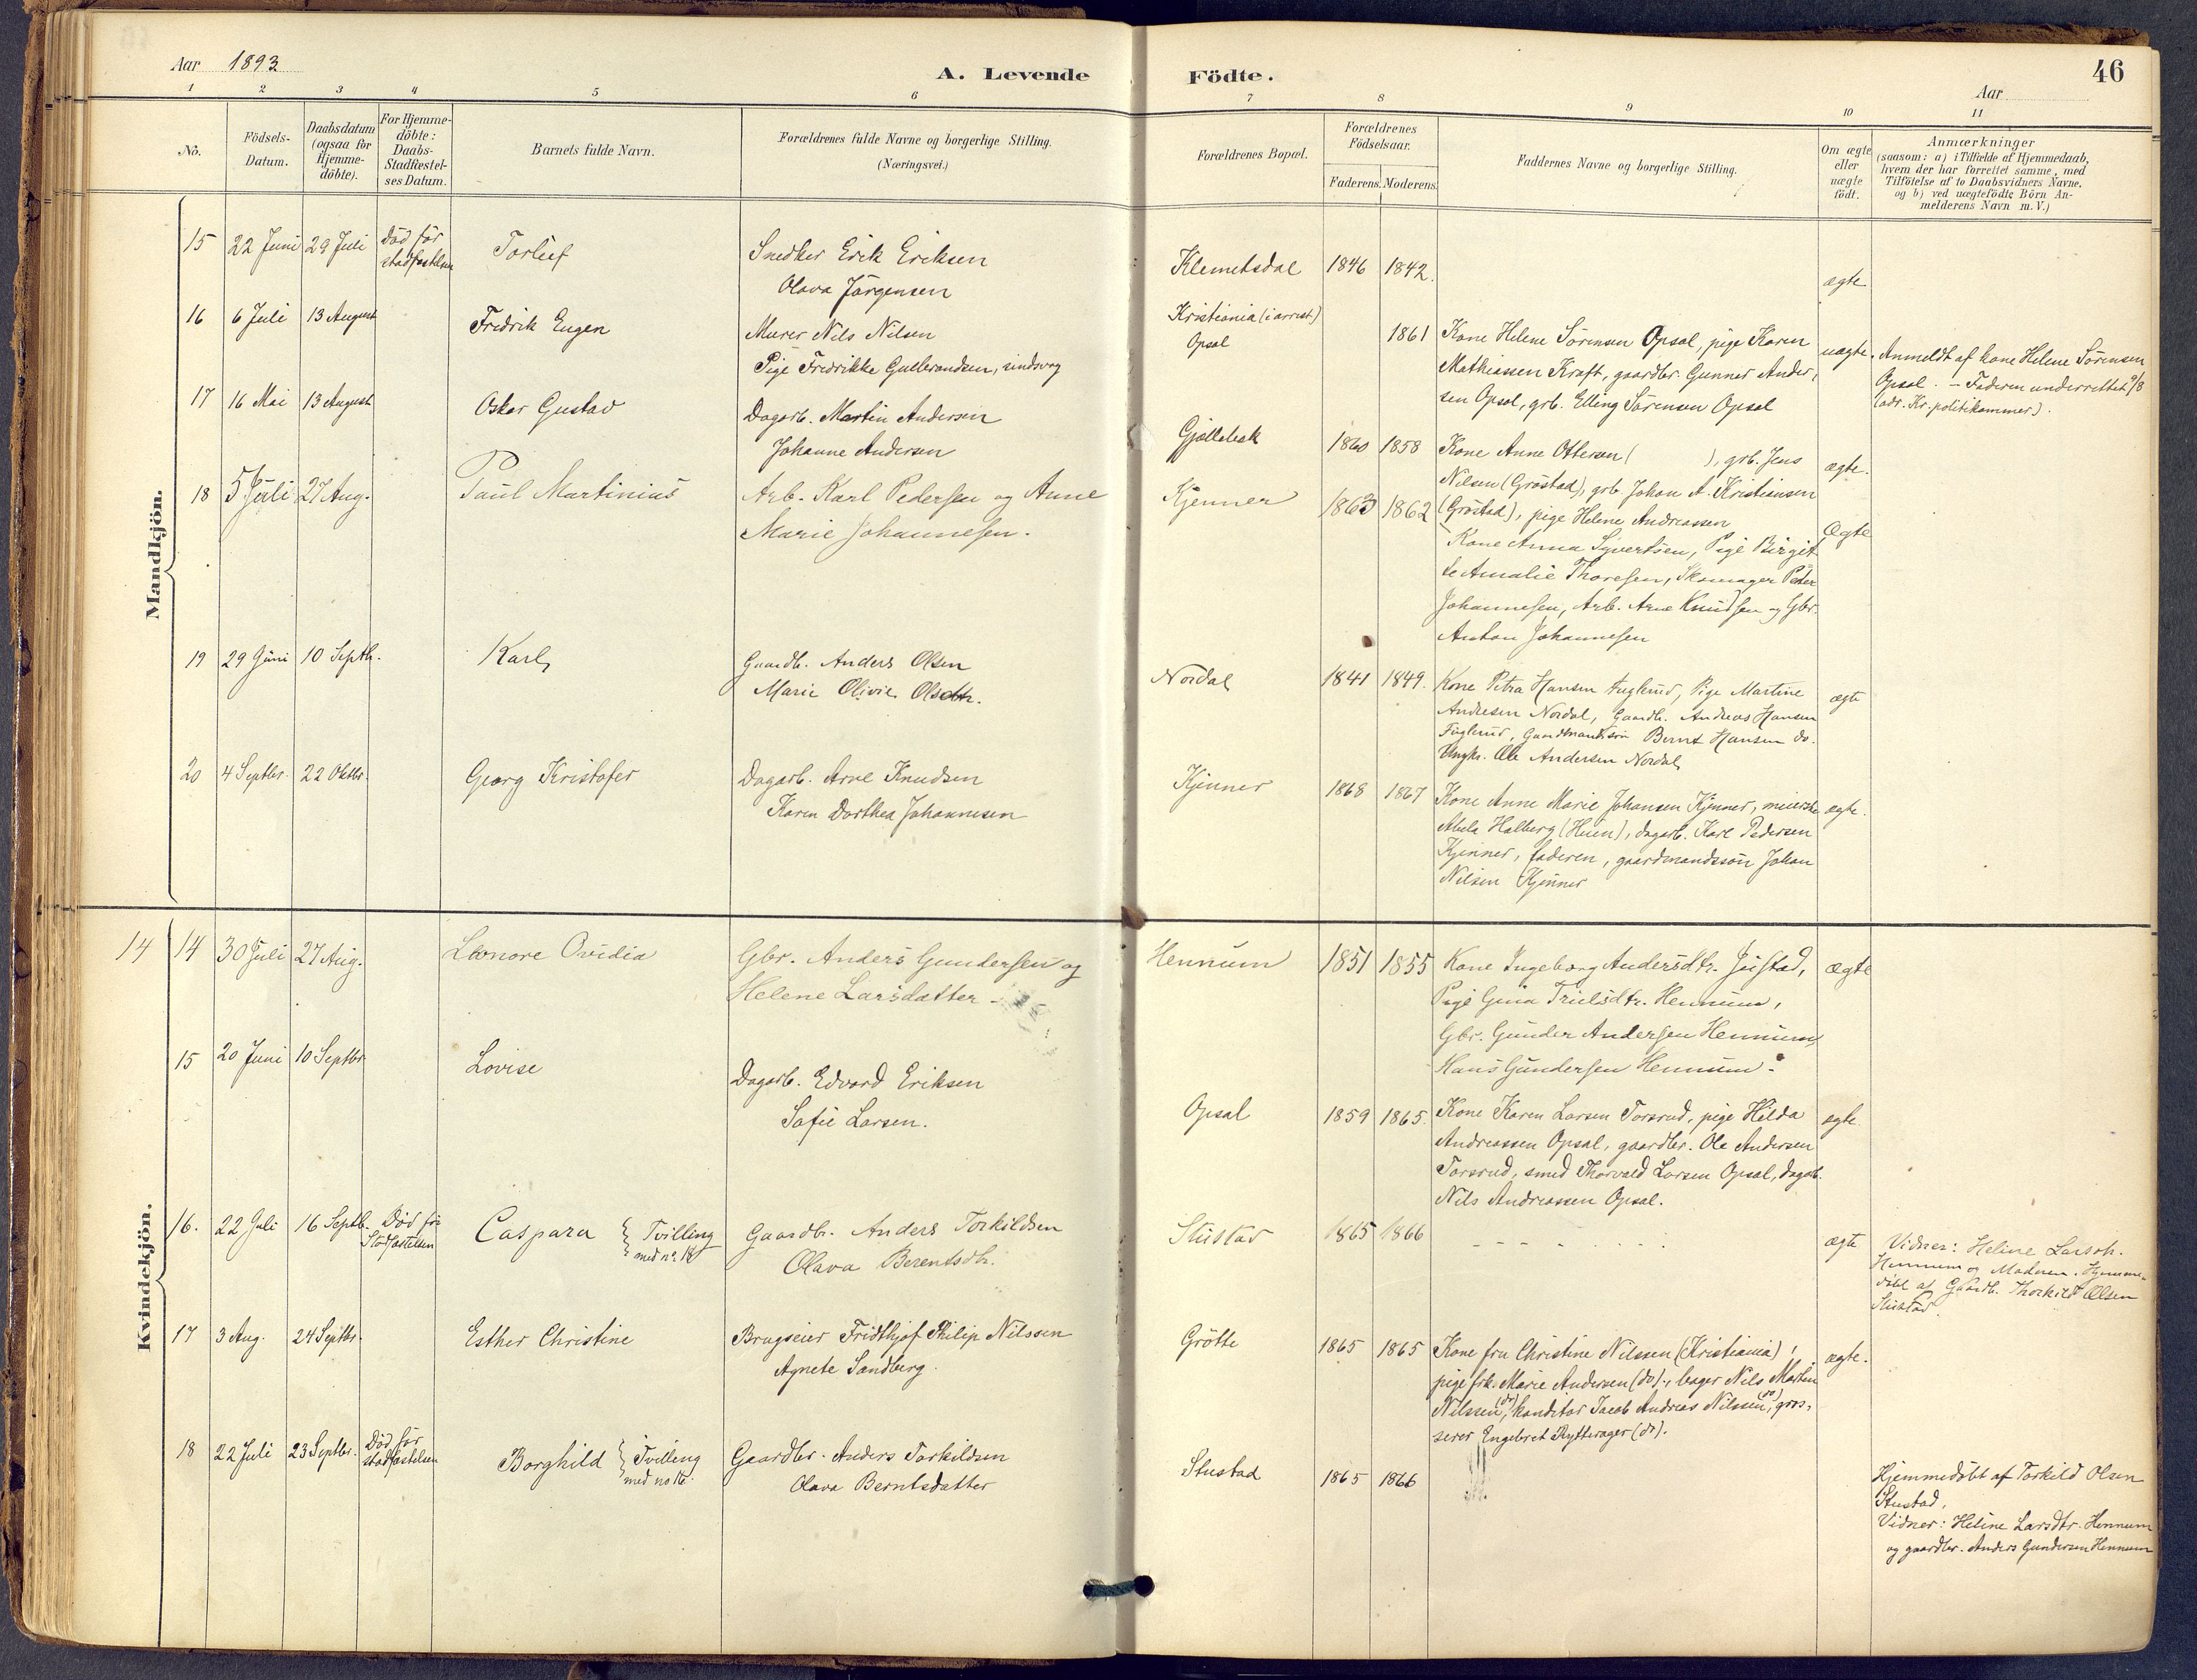 Aar 1893
A. Levende Födte.
46
Aar
1 2 3 4 5 6 7 8 9 10 11
No.
Födsels-Datum.
Daabsdatum (ogsaa for Hjemme-döbte).
For Hjemme-döbte: Daabs-Stadfæstel-ses Datum.
Barnets fulde Navn.
Forældrenes fulde Navne og borgerlige Stilling. (Næringsvei.)
Forældrenes Bopæl.
Forældrenes Födselsaar.
Faderens. Moderens.
Faddernes Navne og borgerlige Stilling.
Om ægte eller uægte födt.
Anmærkninger
(saasom: a) i Tilfælde af Hjemmedaab,
hvem der har forrettet samme, med
Tilföielse af to Daabsvidners Navne.
og b) ved uægtefödte Börn An-
melderens Navn m. V.)
Mandkjön.
15 22 Juni 29 Juli Död för stadfæstelsen
Torleif
Snedker Erik Eriksen
Olava Jörgensen
Klemetsdal 1846 1842.
ægte
16 6 Juli 13 August
Fredrik Eugen
Murer Nils Nilsen
Pige Fredrikke Gulbrandsen, sindssvag
Kristiania (i arrest)
Opsal
1861
Kone Helene Sörensen Opsal, pige Karen
Mathiassen Kraft, gaardbr. Gunner Ander-
sen Opsal, grb. Elling Sörensen Opsal
uægte.
Anmeldt af kone Helene Sörensen
Opsal. – Faderen underrettet 9/8
(adr. Kr. politikammer).
17 16 Mai 13 August
Oskar Gustav
Dagarb. Martin Andersen
Johanne Andersen
Gjellebæk 1860 1858
Kone Anne Ottersen ( ), grb. Jens
Nilsen (Gröstad), grb. Johan A. Kristiansen
(Gröstad), pige Helene Andreassen
ægte.
18 5 Juli 27 Aug.
Paul Martinius
Arb. Karl Pedersen og Anne
Marie Johannesen.
Kjenner 1863 1862
Kone Anna Syvertsen, Pige Birgit-
te Amalie Thoresen, Skomager Peder
Johannesen, Arb. Arne Knudsen og Gbr.
Anton Johannesen
Ægte
19 29 Juni 10 Septb.
Karl
Gaardb. Anders Olsen
Marie Olivie Olsdtr.
Nordal 1841 1849.
Kone Petra Hansen Fuglerud, Pige Martine
Andresen Nordal, Gaardb. Andreas Hansen
Fuglerud, Gaardmandssön Bernt Hansen do.
Ungk. Ole Andersen Nordal
ægte
20 4 Septbr. 22 Oktbr.
Georg Kristofer
Dagarb. Arne Knudsen
Karen Dorthea Johannesen
Kjenner 1868 1867
Kone Anne Marie Johansen Kjenner, meierske
Abela Halberg (Huen), dagarb. Karl Pedersen
Kjenner, faderen, gaardmandssön Johan
Nilsen Kjenner
ægte.
Kvindekjön.
14 14 30 Juli 27 Aug.
Leonore Ovidia
Gbr. Anders Gundersen og
Helene Larsdatter
Hennum 1851 1855
Kone Ingeborg Andersdtr. Justad,
Pige Gina Truelsdtr. Hennum,
Gbr. Gunder Andersen Hennum,
Hans Gundersen Hennum.
ægte
15 20 Juni 10 Septbr
Lovise
Dagarb. Edvard Eriksen
Sofie Larsen.
Opsal 1859 1865.
Kone Karen Larsen Torsrud, pige Hilda
Andreassen Opsal, gaardbr. Ole Andersen
Torsrud, smed Thorvald Larsen Opsal, dagarb.
Nils Andreassen Opsal.
ægte.
16. 22 Juli 16 Septb. Död för Stadfæstelsen
Caspara Tvilling med no. 18
Gaardbr. Anders Torkildsen
Olava Berentsdtr.
Stustad 1865 1866
ægte
Vidner: Heline Larsdtr.
Hennum og Moderen. Hjemme-
döbt af Gaardb. Thorkild Olsen
Stustad.
17 3 Aug. 24 Septbr.
Esther Christine
Brugseier Fridthjof Philip Nilssen
Agnete Sandberg.
Grötte 1865 1865
Kone fru Christine Nilssen (Kristiania),
pige frk. Marie Andersen (do)., bager Nils Martin
Nilssen (do), konditor Jacob Andreas Nilssen (do), gros-
serer Engebret Rytterager (do).
ægte.
18 22 Juli 23 Septbr. Död för stadfæstelsen
Borghild Tvilling med no 16.
Gaardbr. Anders Torkildsen
Olava Berntsdatter
Stustad 1865 1866
Hjemmedöbt af Torkild Olsen
Stustad.
Vidner: Heline Larsdtr. Hennum
og gaardbr. Anders Gundersen Hennum